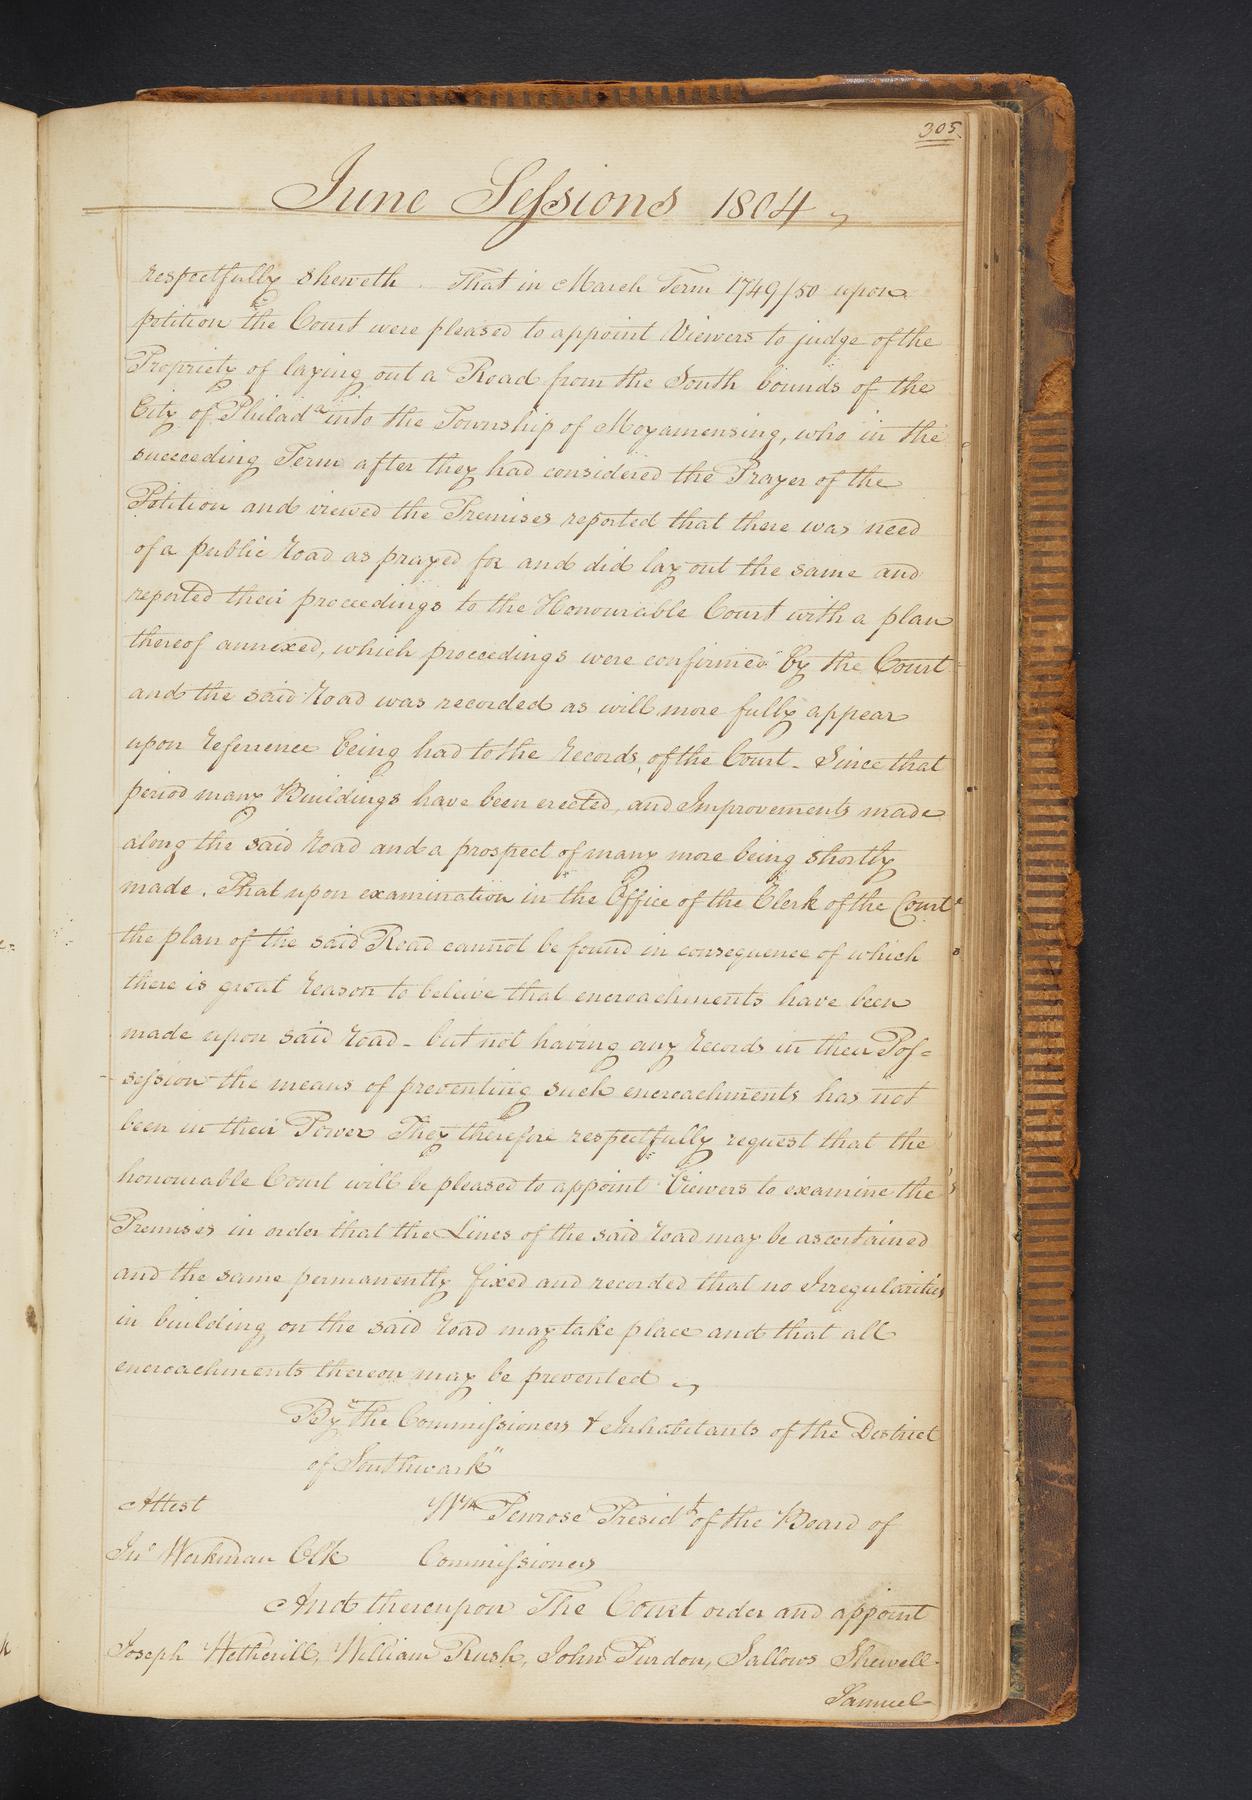 305.
June Sessions 1804
respectfully sheweth. That in March Term 1749/50 upon
petition the Court were pleased to appoint Viewers to judge of the
Propriety of laying out a Road from the South bounds of the
City of Philada into the Township of Moyamensing, who in the
succeeding Term after they had considered the Prayer of the
Petition and viewed the Premises reported that there was need
of a public road as prayed for and did lay out the same and
reported their proceedings to the Honourable Court with a plan
thereof annexed, which proceedings were confirmed by the Court
and the said road was recorded as will more fully appear
upon reference being had to the records of the Court - Since that
period many Buildings have been erected, and Improvements made
along the said road and a prospect of many more being shortly
made. That upon examination in the Office of the Clerk of the Court
the plan of the said Road cannot be found in consequence of which
there is great reason to beleive that encroachments have been
made upon said road - but not having any records in their Pos=
session the means of preventing such encroachments has not
been in their Power They therefore respectfully request that the
honourable Court will be pleased to appoint Viewers to examine the
Premises in order that the Lines of the said road may be ascertained
and the same permanently fixed and recorded that no Irregularities
in building on the said road may take place and that all
encroachments thereon may be prevented
By "the Commissioners & Inhabitants of the District
of Southwark"
Attest Wm Penrose Presidt of the Board of
Jno Workman Clk Commissioners
And thereupon The Court order and appoint
Joseph Wetherill, William Rush, John Purdon, Sallows Shewell
Samuel